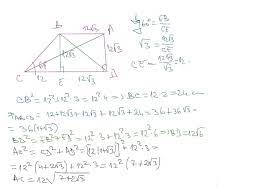 B 12√3 A
12√3
12√3
60°
C 12 E 12√3 D
tg60° = EB/CE
√3 = 12√3/CE
CE = 12√3/√3 = 12
CB² = 12²+12²·3 = 12²·4 => BC = 12·2 = 24 cm
P_ABCD = 12+12√3+12√3+12√3+24 = 36+36√3
= 36(1+√3)
BD² = EB²+ED² = 12²·3+12²·3 = 12²·6 => BD = 12√6
AC² = CD²+AD² = [12(1+√3)]²+12²·3 =
= 12²(4+2√3)+12²·3 = 12²(7+2√3)
AC = 12√7+2√3